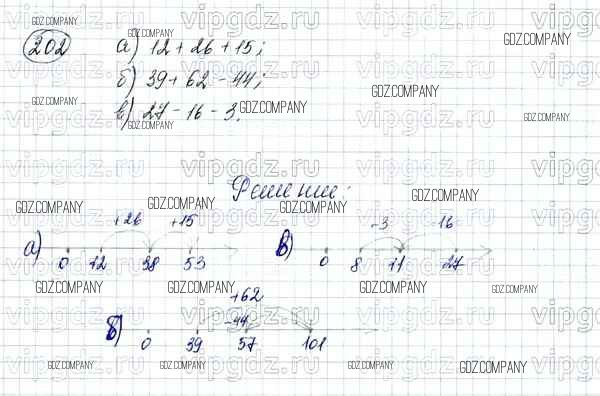 202 а) 12 + 26 + 15;
б) 39 + 62 - 44;
в) 27 - 16 - 3.
Решение:
+26 +15
а) 0 12 38 53
-3 -16
в) 0 8 11 27
+62
-44
б) 0 39 57 101
GDZ.COMPANY
vipgdz.ru